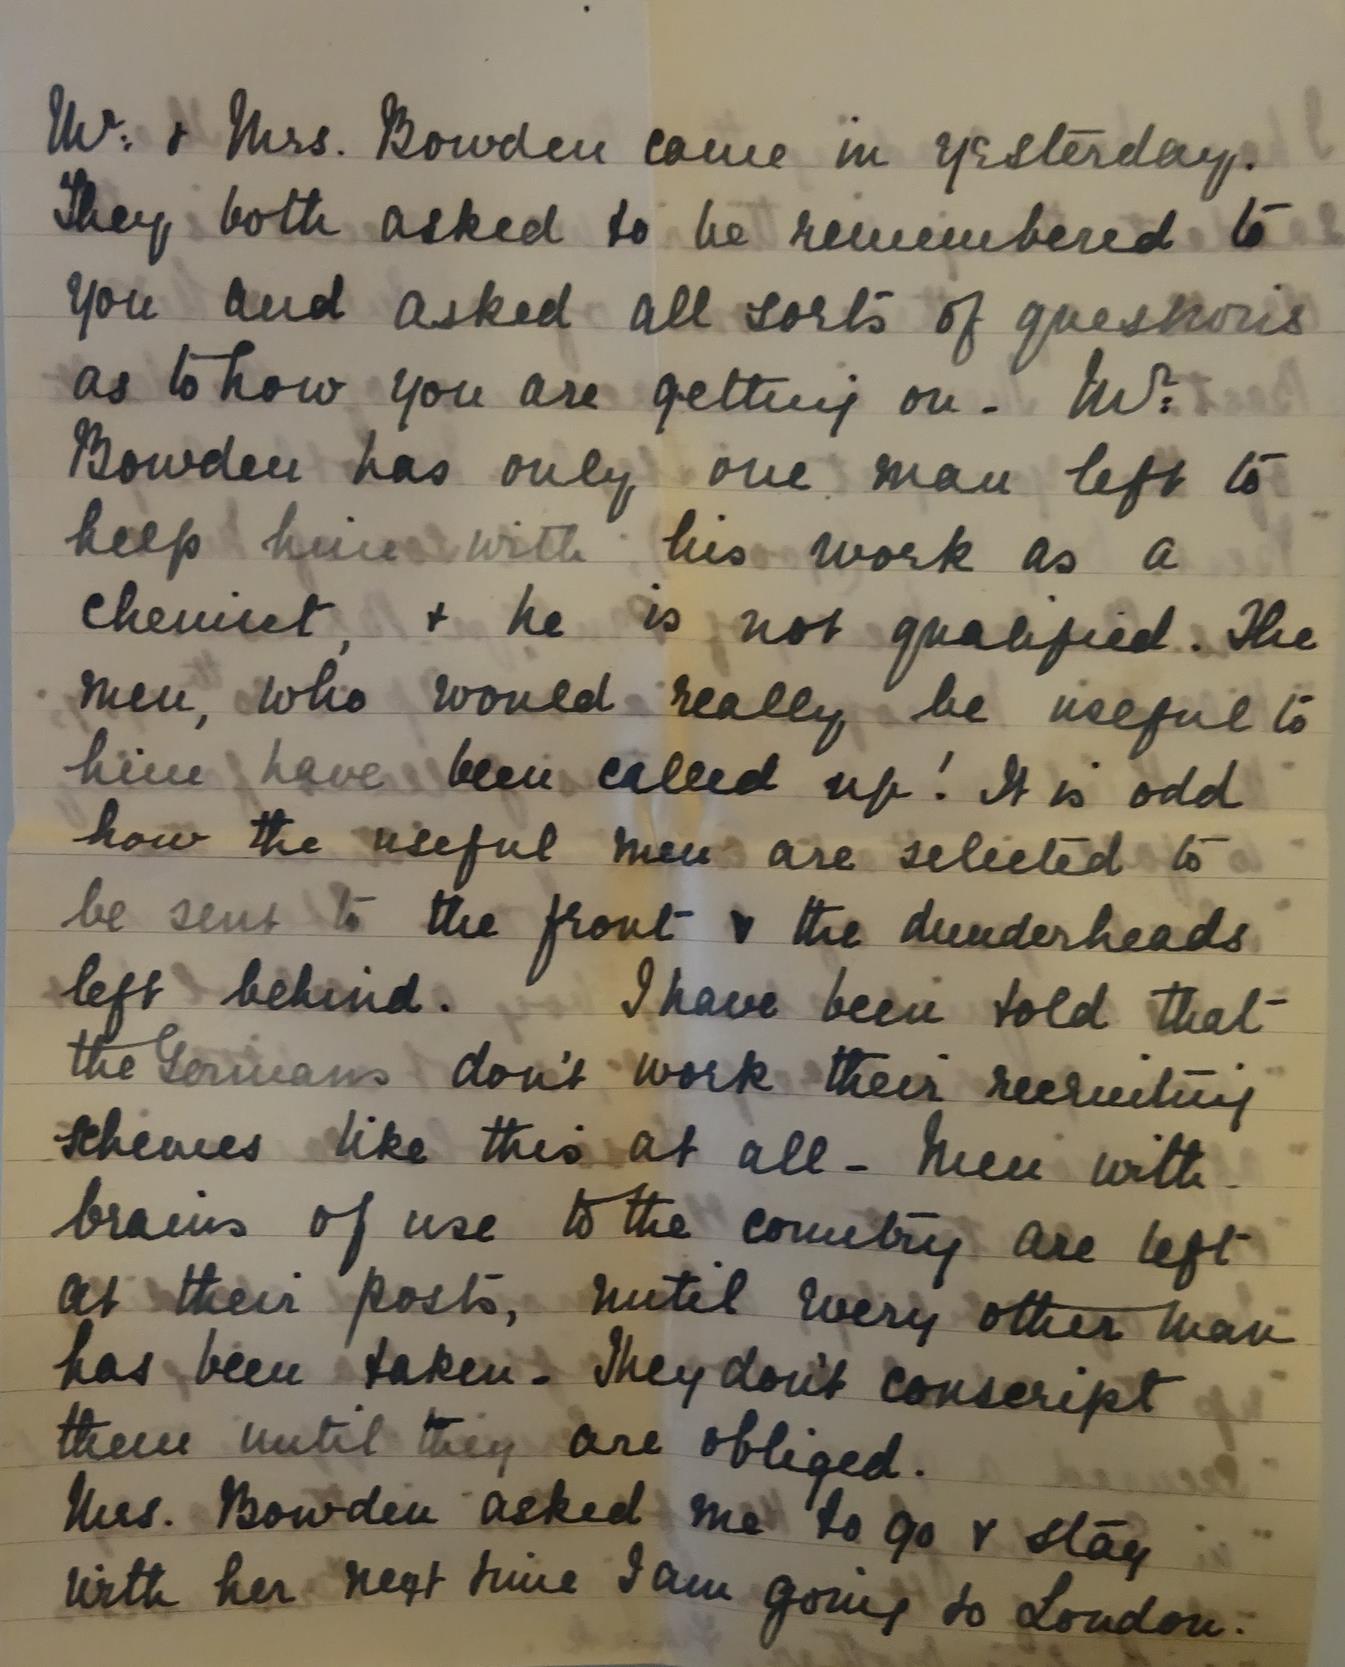 Mr. & Mrs. Bowden came in yesterday.
They both asked to be remembered to
you and asked all sorts of questions
as to how you are getting on - Mr.
Bowden has only one man left to
help him with his work as a
chemist, & he is not qualified. The
men, who would really be useful to
him have been called up! It is odd
how the useful men are selected to
be sent to the front & the dunderheads
left behind. I have been told that
the Germans don't work their recruiting
schemes like this at all - Men with
brains of use to the country are left
at their posts, until every other man
has been taken - They don't conscript
them until they are obliged.
Mrs. Bowden asked me to go & stay
with her next time I am going to London.